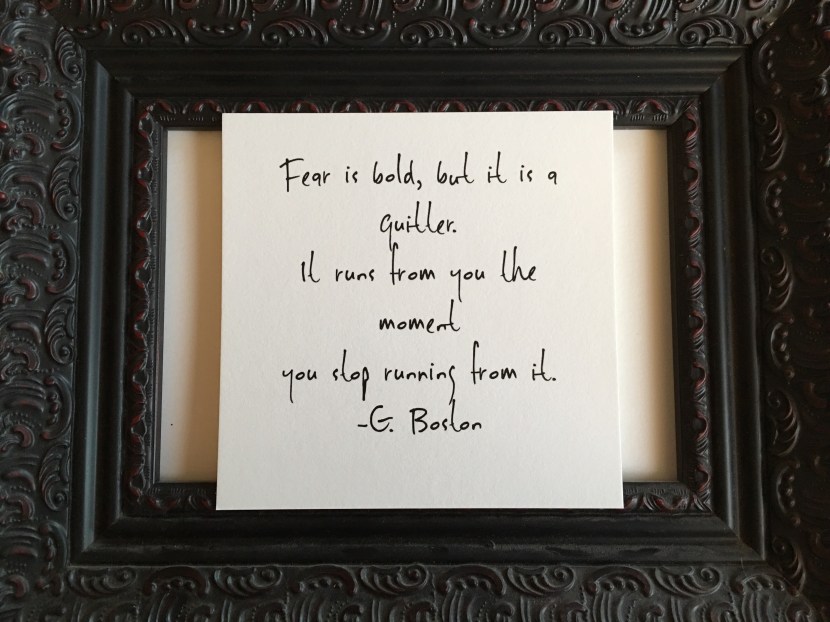 Fear is bold, but it is a
quitter.
It runs from you the
moment
you stop running from it.
-G. Boston